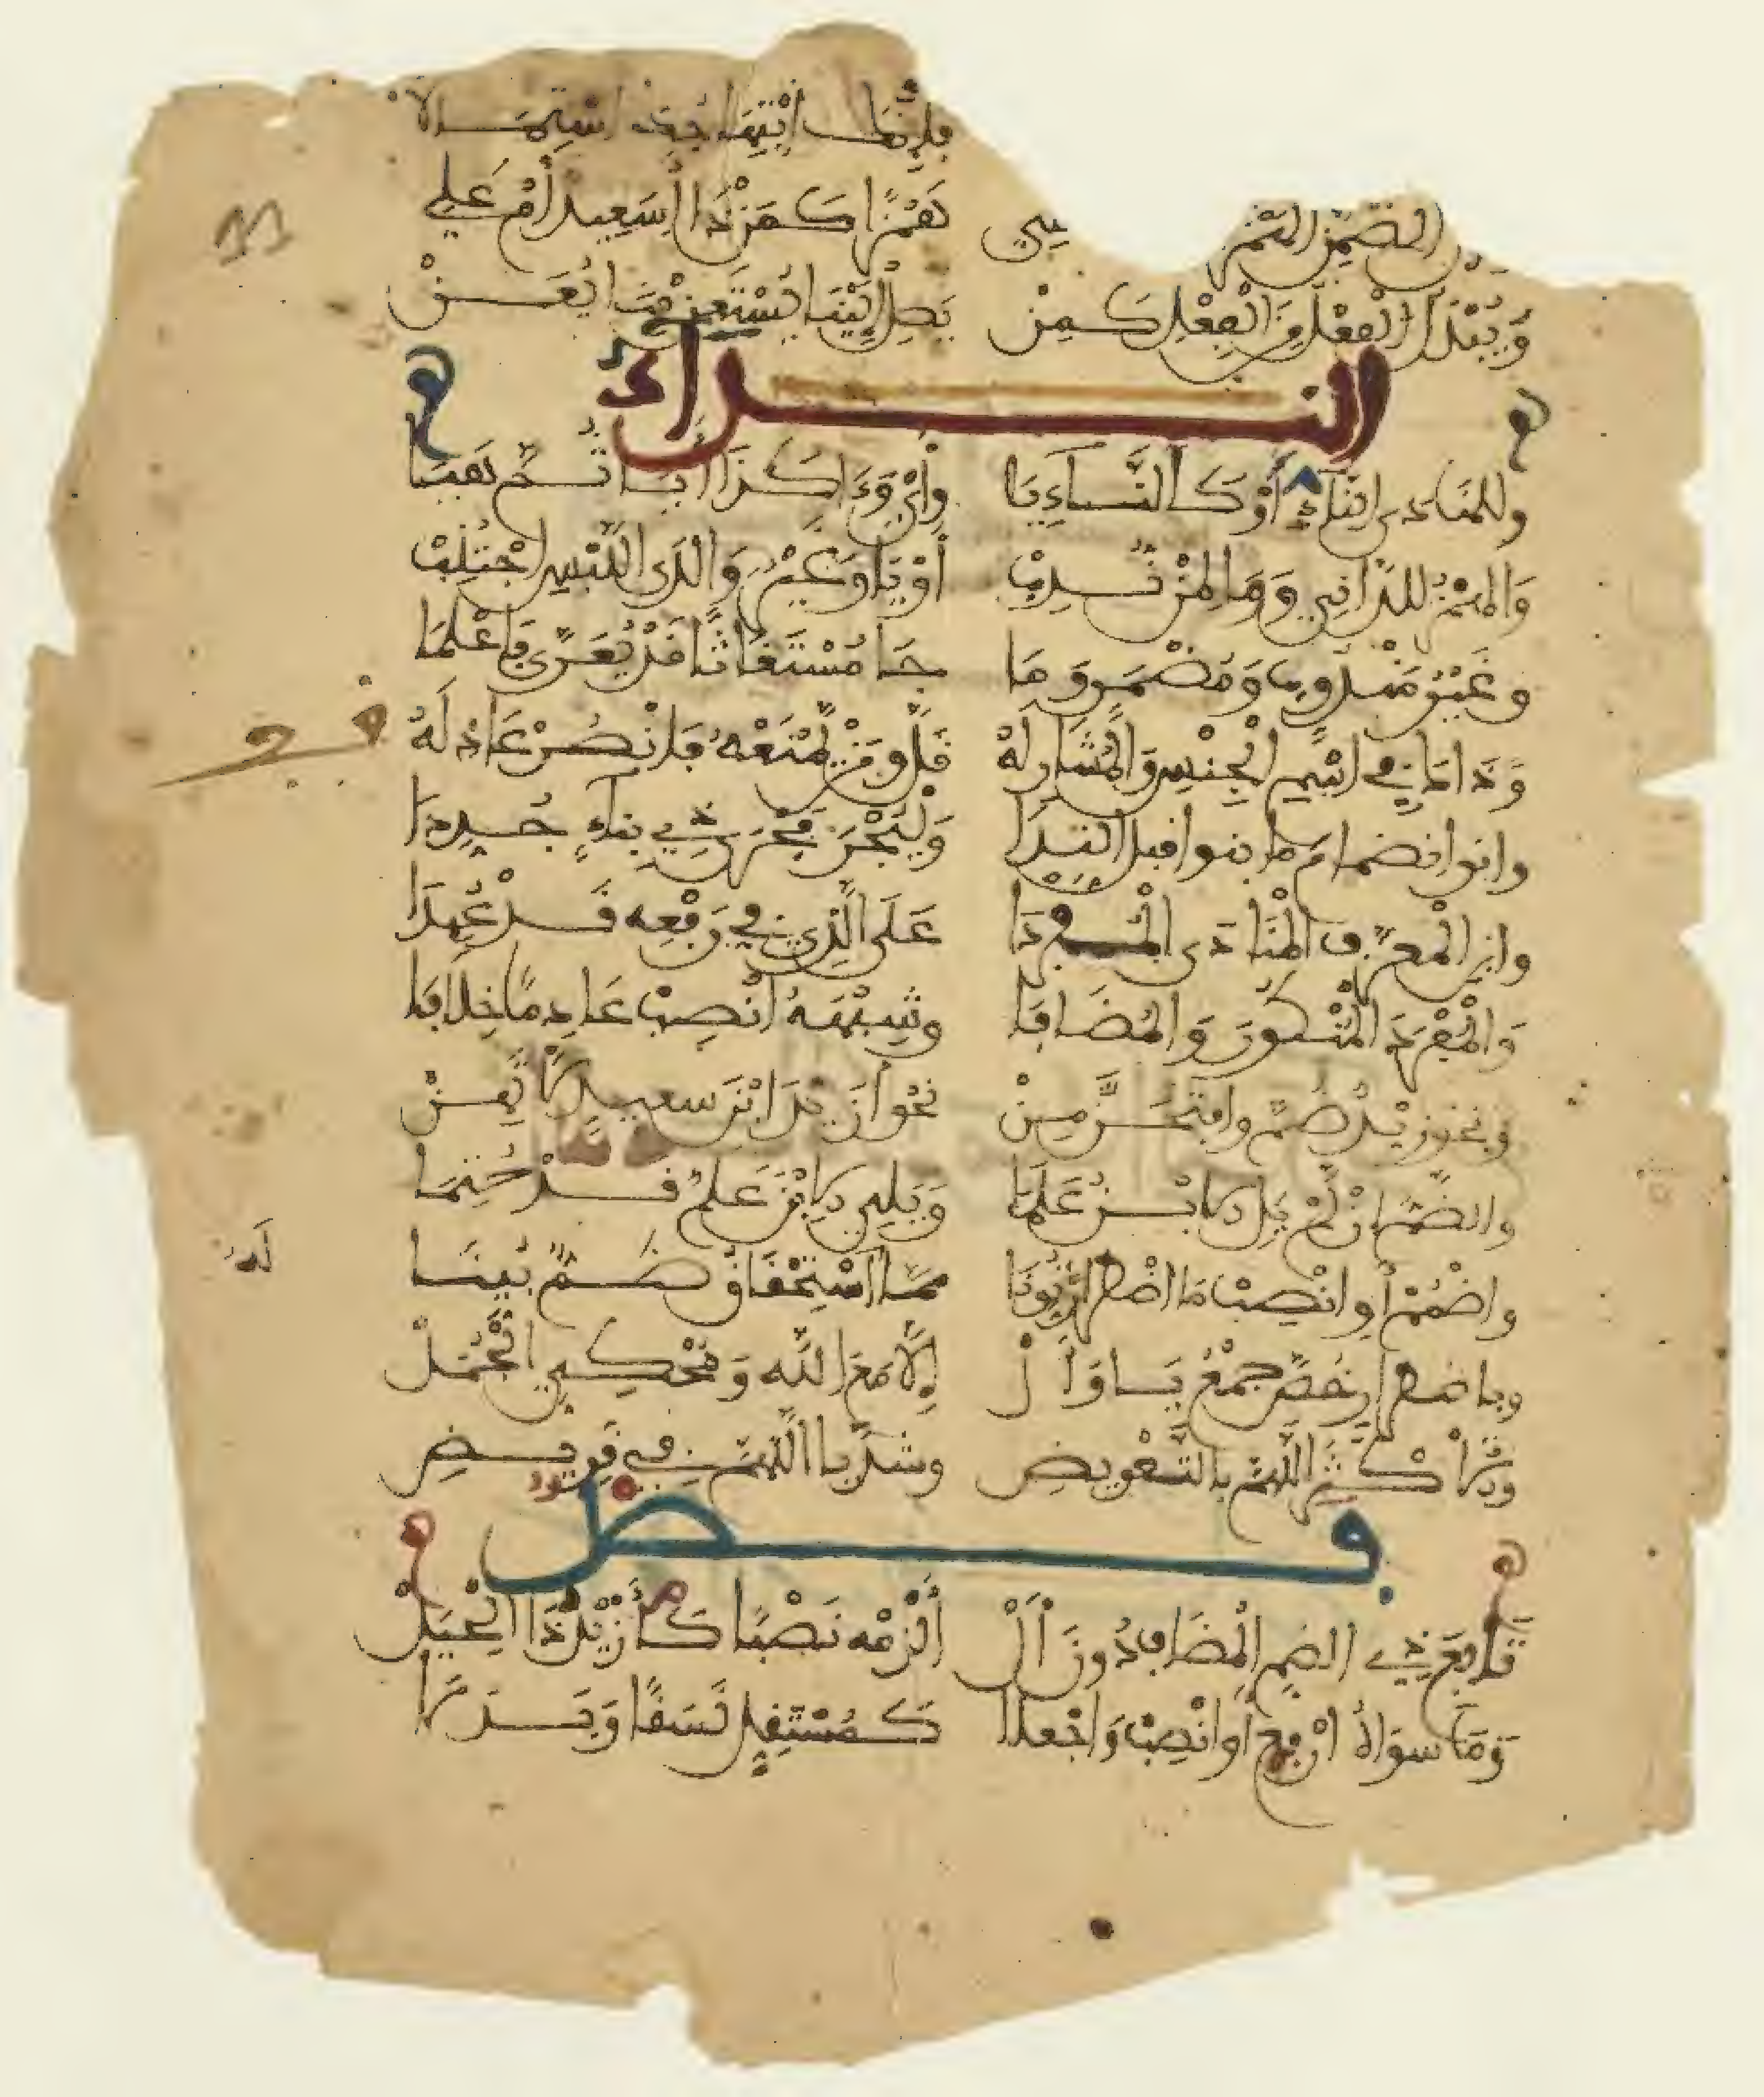 فإنها انتهاء استملا
الضمن الهمز يلي همزا كمن ذا أسعيد أم علي
ويبدل الفعل من الفعل كمن يصل إلينا يستعن بنا يعن
النداء
وللمنادى الناء أو كالناء يا وأي وءا كذا أيا ثم هيا
والهمز للداني ووا لمن ندب أو يا وغير وا لدى اللبس اجتنب
وغير مندوب ومضمر وما جا مستغاثا قد يعرى فاعلما
وذاك في اسم الجنس والمشار له قل ومن يمنعه فانصر عاذله
وانو انضمام ما بنوا قبل الندا وليجر مجرى ذي بناء جددا
وابن المعرف المنادى المفردا على الذي في رفعه قد عهدا
والمفرد المنكور والمضافا وشبهه انصب عادما خلافا
ونحو زيد ضم وافتحن من نحو أزيد ابن سعيد لا تهن
والضم إن لم يل الابن علما ويلي الابن علم قد حتما
واضمم أو انصب ما اضطرارا نونا مما له استحقاق ضم بينا
وباضطرار خص جمع يا وال إلا مع الله ومحكي الجمل
والأكثر اللهم بالتعويض وشذ يا اللهم في قريض
فصل
تابع ذي الضم المضاف دون ال ألزمه نصبا كأزيد ذا الحيل
وما سواه ارفع أو انصب واجعلا كمستقل نسقا وبدلا